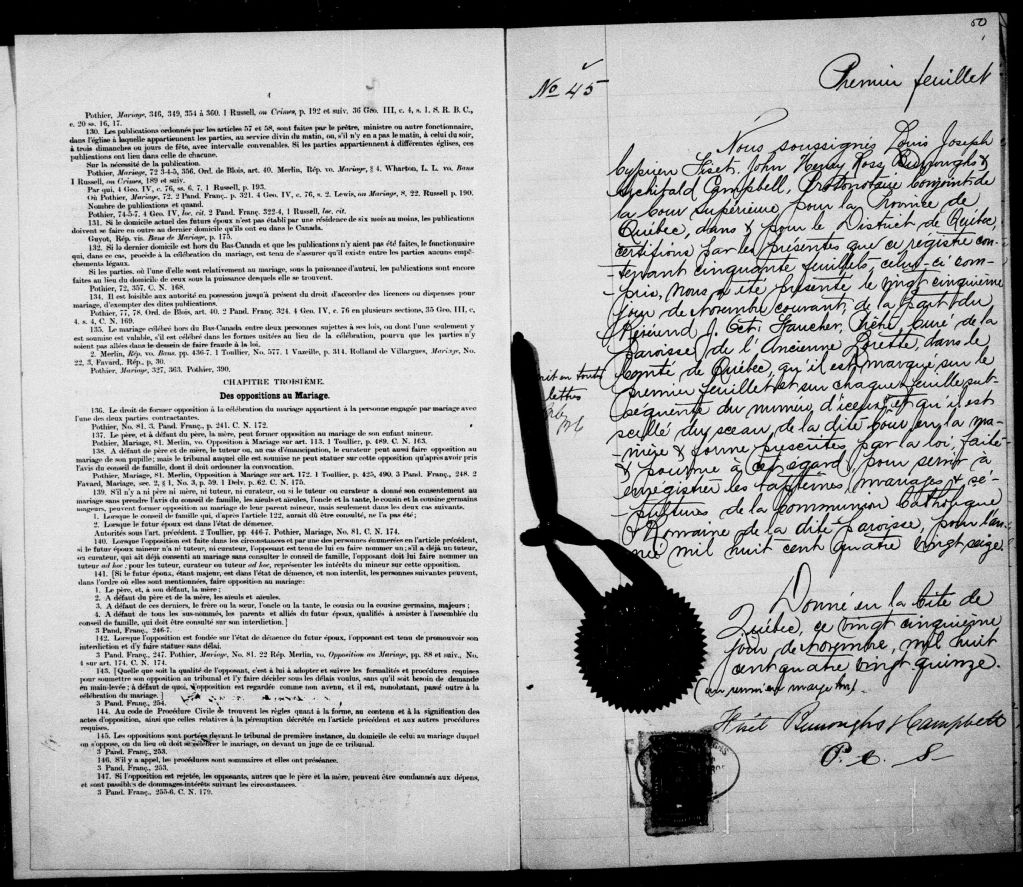 4
Pothier, Mariage, 346, 349, 354 à 360. 1 Russell, on Crimes, p. 192 et suiv. 36 Geo. III, c. 4, s. 1. S. R. B. C.,
c. 20 ss. 16, 17.
130. Les publications ordonnés par les articles 57 et 58, sont faites par le prêtre, ministre ou autre fonctionnaire,
dans l'église à laquelle appartiennent les parties, au service divin du matin, ou, s'il n'y en a pas le matin, à celui du soir,
à trois dimanches ou jours de fête, avec intervalle convenables. Si les parties appartiennent à différentes églises, ces
publications ont lieu dans celle de chacune.
Sur la nécessité de la publication.
Pothier, Mariage, 72 3-4-5, 356. Ord. de Blois, art. 40. Merlin, Rép. vo. Mariage, § 4. Wharton, L. L. vo. Bans
1 Russell, on Crimes, 189 et suiv.
Par qui, 4 Geo. IV, c. 76, ss. 6, 7. 1 Russell, p. 193.
Où Pothier, Mariage, 72. 2 Pand. Franç., p. 321. 4 Geo. IV, c. 76, s. 2. Lewis, on Mariage, 8, 22. Russell p. 190.
Nombre de publications et quand.
Pothier, 74-5-7. 4 Geo. IV, loc. cit. 2 Pand. Franç. 322-4, 1 Russell, loc. cit.
131. Si le domicile actuel des futurs époux n'est pas établi par une résidence de six mois au moins, les publications
doivent se faire en outre au dernier domicile qu'ils ont eu dans le Canada.
Guyot, Rép. vis. Bans de Mariage, p. 175.
132. Si le dernier domicile est hors du Bas-Canada et que les publications n'y aient pas été faites, le fonctionnaire
qui, dans ce cas, procède à la célébration du mariage, est tenu de s'assurer qu'il existe entre les parties aucuns empê-
chements légaux.
Si les parties, où l'une d'elles sont relativement au mariage, sous la puissance d'autrui, les publications sont encore
faites au lieu du domicile de ceux sous la puissance desquels elle se trouvent.
Pothier, 72, 357, C. N. 168.
134. Il est loisible aux autorité en possession jusqu'à présent du droit d'accorder des licences ou dispenses pour
mariage, d'exempter des dites publications.
Pothier, 77, 78. Ord. de Blois, art. 40. 2 Pand. Franç. 324. 4 Geo. IV, c. 76 en plusieurs sections, 35 Geo. III, c,
4, s. 4, C. N. 169.
135. Le mariage célébré hors du Bas-Canada entre deux personnes sujettes à ses lois, ou dont l'une seulement y
est soumise est valable, s'il est célébré dans les formes usitées au lieu de la célébration, pourvu que les parties n'y
soient pas allées dans le dessein de faire fraude à la loi.
2. Merlin, Rép. vo. Bans. pp. 436-7. 1 Toullier, No. 577. 1 Vazeille, p. 314. Rolland de Villargues, Mariage, No.
22, 3. Favard, Rép., p. 30.
Pothier, Mariage, 327, 363. Pothier, 390.
CHAPITRE TROISIÈME.
Des oppositions au Mariage.
136. Le droit de former opposition à la célébration du mariage appartient à la personne engagée par mariage avec
l'une des deux parties contractantes.
Pothier, No. 81. 3. Pand. Franç., p. 241. C. N. 172.
137. Le père, et à défaut du père, la mère, peut former opposition au mariage de son enfant mineur.
Pothier, Mariage, 81. Merlin, vo. Opposition à Mariage sur art. 113. 1 Toullier, p. 489. C. N. 163.
138. A défaut de père et de mère, le tuteur ou, au cas d'émancipation, le curateur peut aussi faire opposition au
mariage de son pupille; mais le tribunal auquel elle est soumise ne peut statuer sur cette opposition qu'après avoir pris
l'avis du conseil de famille, dont il doit ordonner la convocation.
Pothier, Mariage, 81. Merlin, Opposition à Mariage sur art. 172. 1 Toullier, p. 425, 490. 3 Pand. Franç., 248. 2
Favard, Mariage, sec. 2, § 1, No. 3, p. 59. 1 Delv. p. 62. C. N. 175.
139. S'il n'y a ni père ni mère, ni tuteur, ni curateur, ou si le tuteur ou curateur a donné son consentement au
mariage sans prendre l'avis du conseil de famille, les aïeuls et aïeules, l'oncle et la tante, le cousin et la cousine germains
majeurs, peuvent former opposition au mariage de leur parent mineur, mais seulement dans les deux cas suivants.
1. Lorsque le conseil de famille qui, d'après l'article 122, aurait dû être consulté, ne l'a pas été;
2. Lorsque le futur époux est dans l'état de démence.
Autorités sous l'art. précédent. 2 Toullier, pp 446-7. Pothier, Mariage, No. 81, C. N. 174.
140. Lorsque l'opposition est faite dans les circonstances et par une des personnes énumérées en l'article précédent,
si le futur époux mineur n'a ni tuteur, ni curateur, l'opposant est tenu de lui en faire nommer un; s'il a déjà un tuteur,
ou curateur, qui ait déjà consenti au mariage sans consulter le conseil de famille, l'opposant doit lui faire nommer un
tuteur ad hoc; pour les tuteur, curateur ou tuteur ad hoc, représenter les intérêts du mineur sur cette opposition.
141. [Si le futur époux, étant majeur, est dans l'état de démence, et non interdit, les personnes suivantes peuvent,
dans l'ordre où elles sont mentionnées, faire opposition au mariage:
1. Le père, et, à son défaut, la mère;
2. A défaut du père et de la mère, les aïeuls et aïeules.
3. A défaut de ces derniers, le frère ou la sœur, l'oncle ou la tante, le cousin ou la cousine germains, majeurs;
4. A défaut de tous les sus-nommés, les parents et alliés du futur époux, qualifiés à assister à l'assemblée du
conseil de famille, qui doit être consulté sur son interdiction.]
3 Pand. Franç., 246-7.
142. Lorsque l'opposition est fondée sur l'état de démence du futur époux, l'opposant est tenu de promouvoir son
interdiction et d'y faire statuer sans délai.
3 Pand. Franç., 247. Pothier, Mariage, No. 81. 22 Rép. Merlin, vo. Opposition au Mariage, pp. 88 et suiv., No.
4 sur art. 174. C. N. 174.
143. [Quelle que soit la qualité de l'opposant, c'est à lui à adopter et suivre les formalités et procédures requises
pour soumettre son opposition au tribunal et l'y faire décider sous les délais voulus, sans qu'il soit besoin de demande
en main-levée; à défaut de quoi, l'opposition est regardée comme non avenue, et il est, nonobstant, passé outre à la
célébration du mariage.]
3 Pand. Franç., 254.
144. Au code de Procédure Civile se trouvent les règles quant à la forme, au contenu et à la signification des
actes d'opposition, ainsi que celles relatives à la péremption décrétée en l'article précédent et aux autres procédures
requises.
145. Les oppositions sont portées devant le tribunal de première instance, du domicile de celui au mariage duquel
on s'oppose, ou du lieu où doit se célébrer le mariage, ou devant un juge de ce tribunal.
3 Pand. Franç., 253.
146. S'il y a appel, les procédures sont sommaires et elles ont préséance.
3 Pand. Franç., 253.
147. Si l'opposition est rejetée, les opposants, autres que le père et la mère, peuvent être condamnés aux dépens,
et sont passibles de dommages-intérêts suivant les circonstances.
3 Pand. Franç., 255-6. C. N. 179.
50
No 45
Premier feuillet
Nous soussignés Louis Joseph
Cyprien Fiset, John Henry Ross Burroughs &
Archibald Campbell, Protonotaire Conjoint de
la Cour Supérieure pour la Province de
Québec, dans & pour le District de Québec,
certifions par les présentes que ce registre con-
tenant cinquante feuillets, celui-ci com-
pris, nous a été présenté le vingt cinquième
jour de Novembre courant, de la part du
Révérend J. Faucher, Prêtre, Curé de la
Paroisse de l'Ancienne Lorette, dans le
Comté de Québec, qu'il est marqué sur le
premier feuillet et sur chaque feuillet sub-
séquent du numéro d'iceux, et qu'il est
scellé du sceau de la dite Cour, en la ma-
nière & forme prescrites par la loi faite
& pourvue à cet égard, pour servir à
enregistrer les baptêmes, mariages & sé-
pultures de la communion Catholique
& Romaine de la dite paroisse, pour l'an-
née mil huit cent quatre vingt seize.
écrit en toutes
lettres
Donné en la Cité de
Québec, ce vingt cinquième
jour de Novembre, mil huit
cent quatre vingt quinze.
Fiset Burroughs & Campbell
P. C. S.